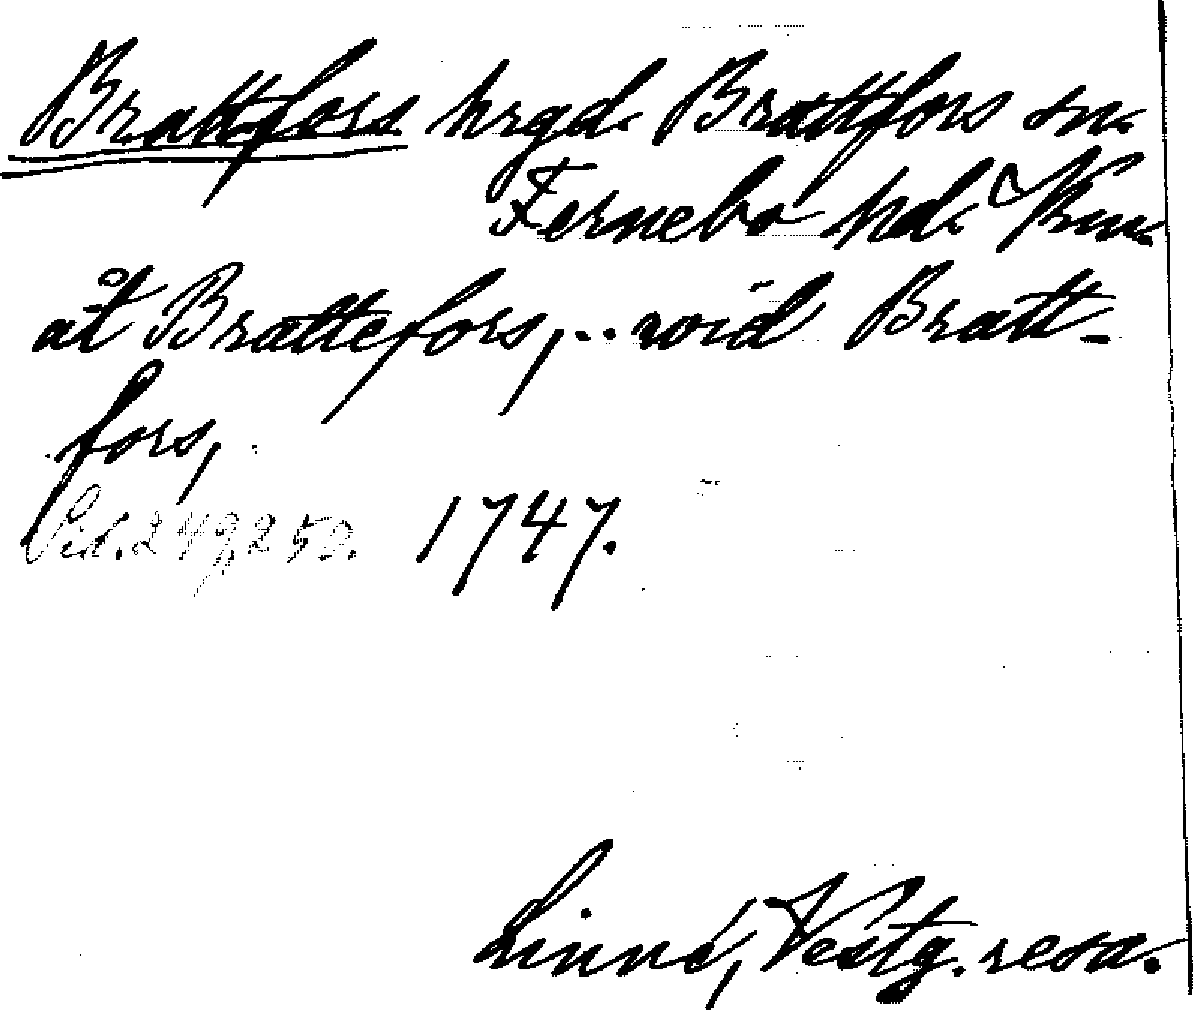 Brattfors hrgd. Brattfors sn.
Fernebo hd. Vrm.
åt Brattefors, .. wid Bratt-
fors,
Sid. 249, 252. 1747.
Linné, Vestg. resa.